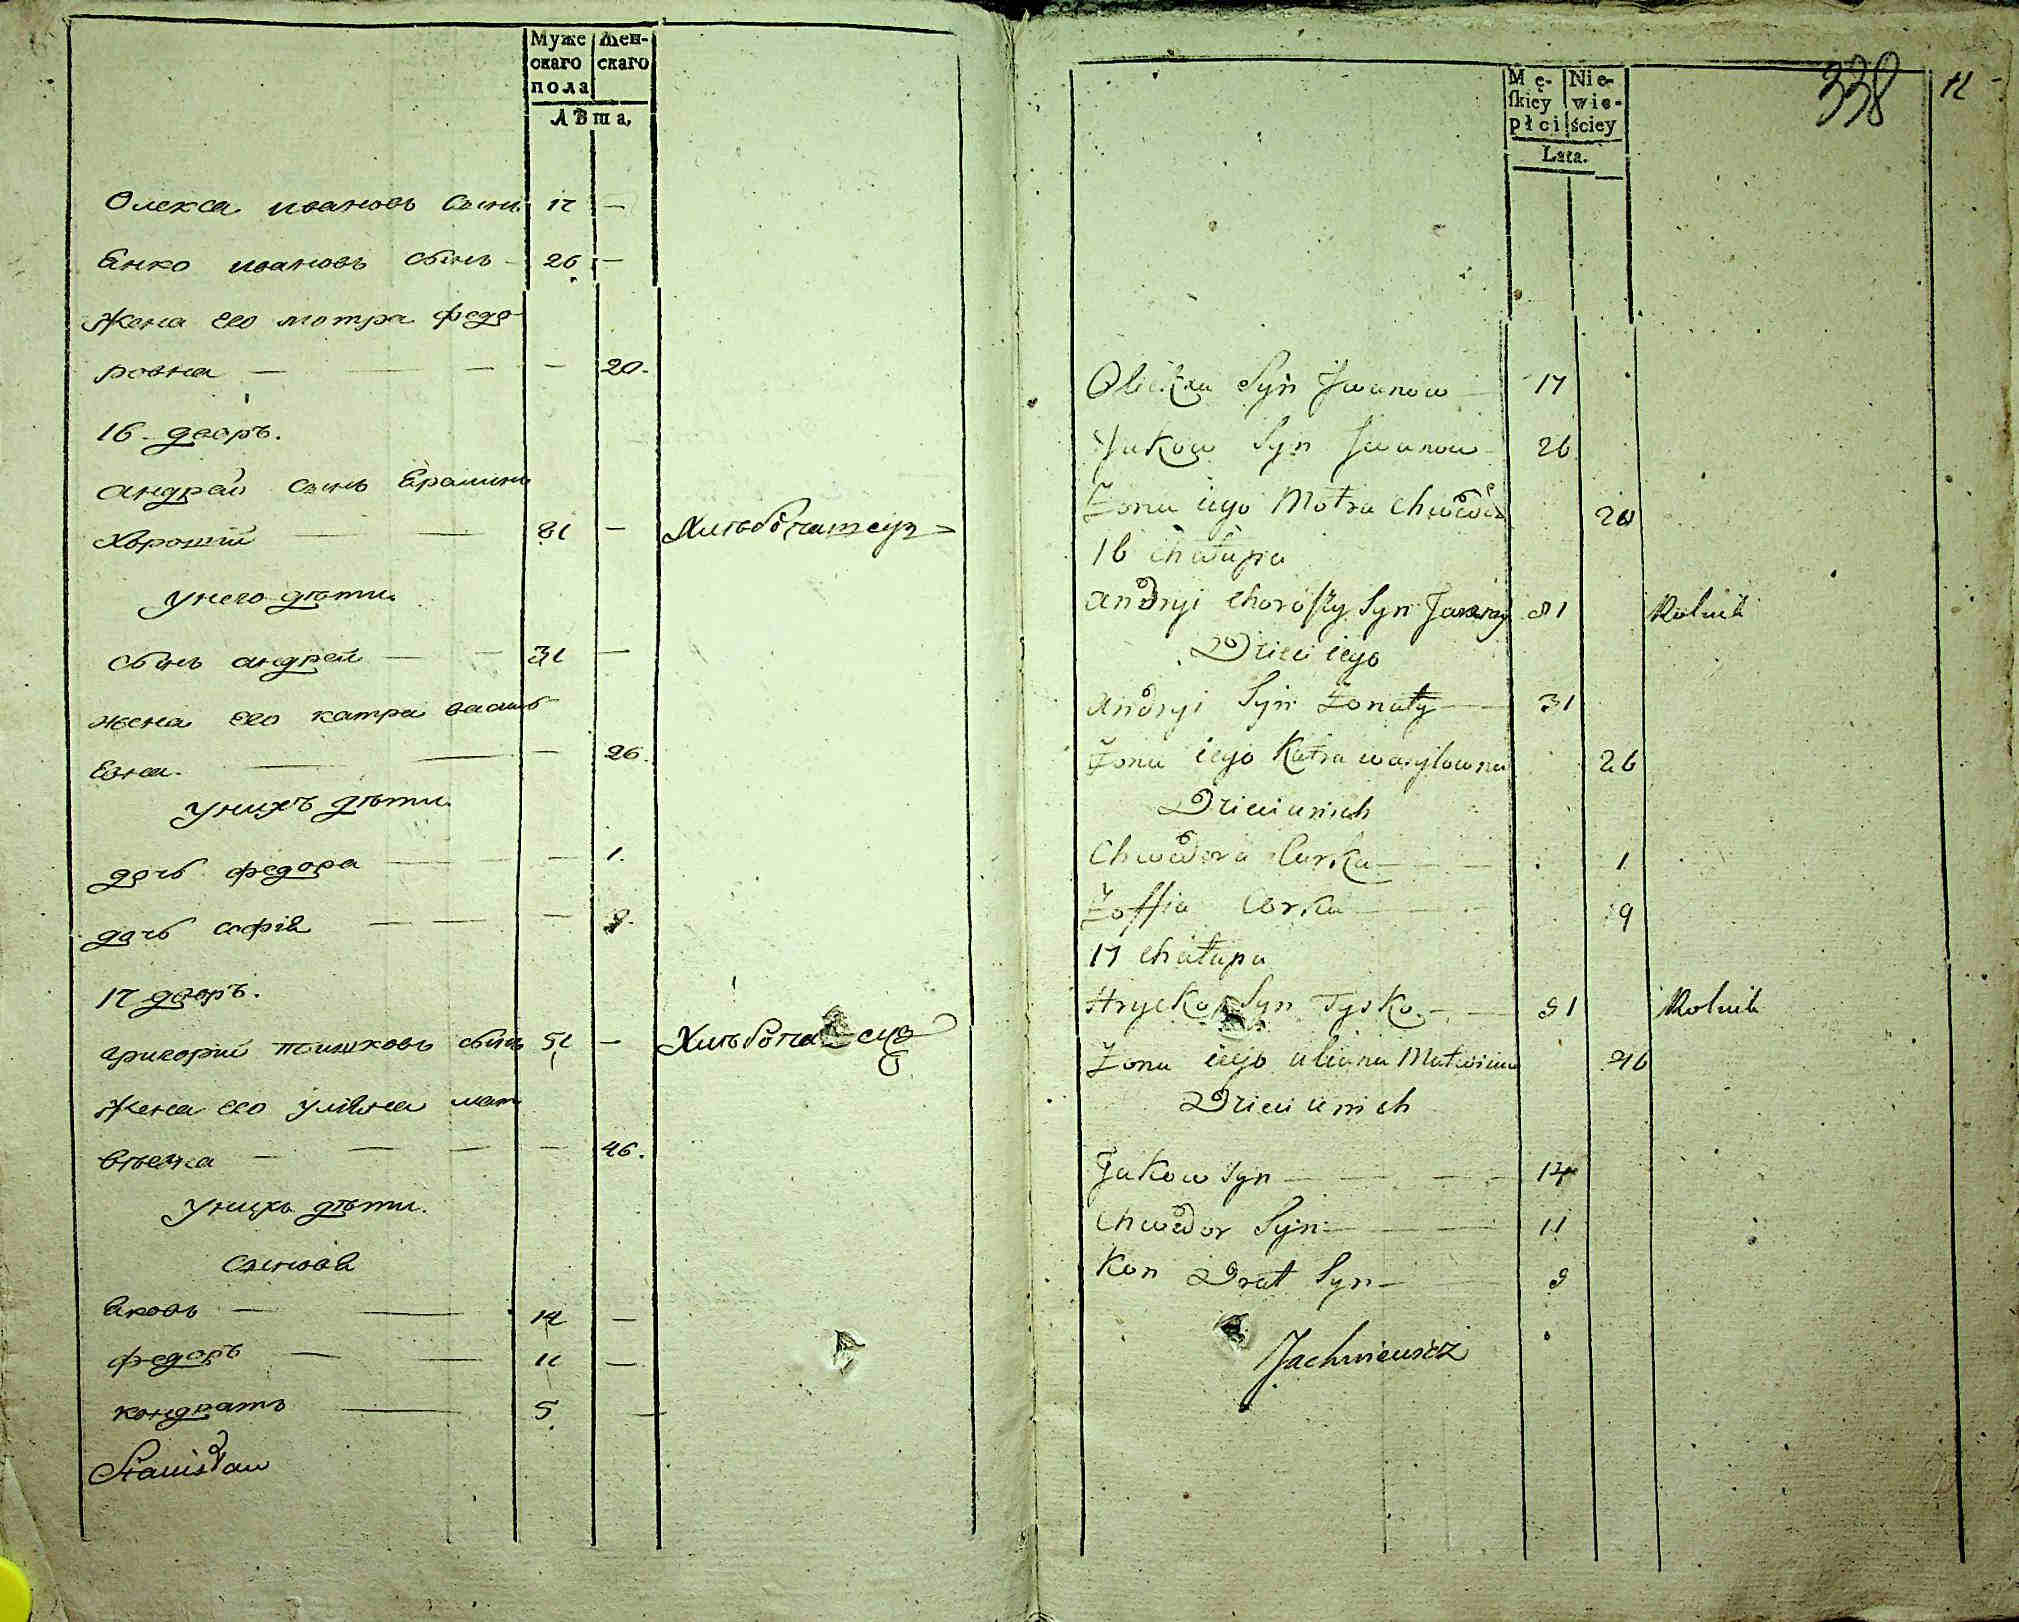 Муже Жен-
скаго скаго
пола
Лѣта,
Олекса ивановъ сынъ 17 —
Енко ивановъ сынъ — 26 —
Жена его мотра федо-
ровна — — — — 20.
16. дворъ.
андрей сынъ
Хорошiй — — 81 — Хлѣбопашецъ
унего дѣти.
сынъ андрей — — 31 —
жена его катра василь
Евна. — — — 26.
унихъ дѣти.
дочь федора — — — 1.
дочь софiя — — — 9.
17 дворъ.
григорiй тишковъ сынъ 51 — Хлѣбопашецъ
Жена его улiяна мат
вѣевна — — — — 46.
унихъ дѣти.
сыновя
Яковъ — — 14 —
федоръ — — 11 —
кондратъ — 5 —
Stanisław
338 11
Mę- Nie-
ſkiey wie-
płci ściey
Lata.
Olieksa Syn Jwanow — 17
Jakow Syn Jwanow — 26
Żona iego Motra Chwedor 20
16 chałupa
Andryi Choroſzy Syn 81 Rolnik
Dzieci iego
Andryi Syn Żonaty — 31
Żona iego Katra wasylowna 26
Dzieci u nich
Chwedora Curka — — — 1
Zoffia Corka — — — 9
17 Chałupa
Hrycko Syn Tysko — — 51 Rolnik
Żona iego uliana Matwiiew 46
Dzieci u nich
Jakow Syn — — — 14
Chwedor Syn — — — 11
Kon Drat Syn — — 5
Jachniewicz